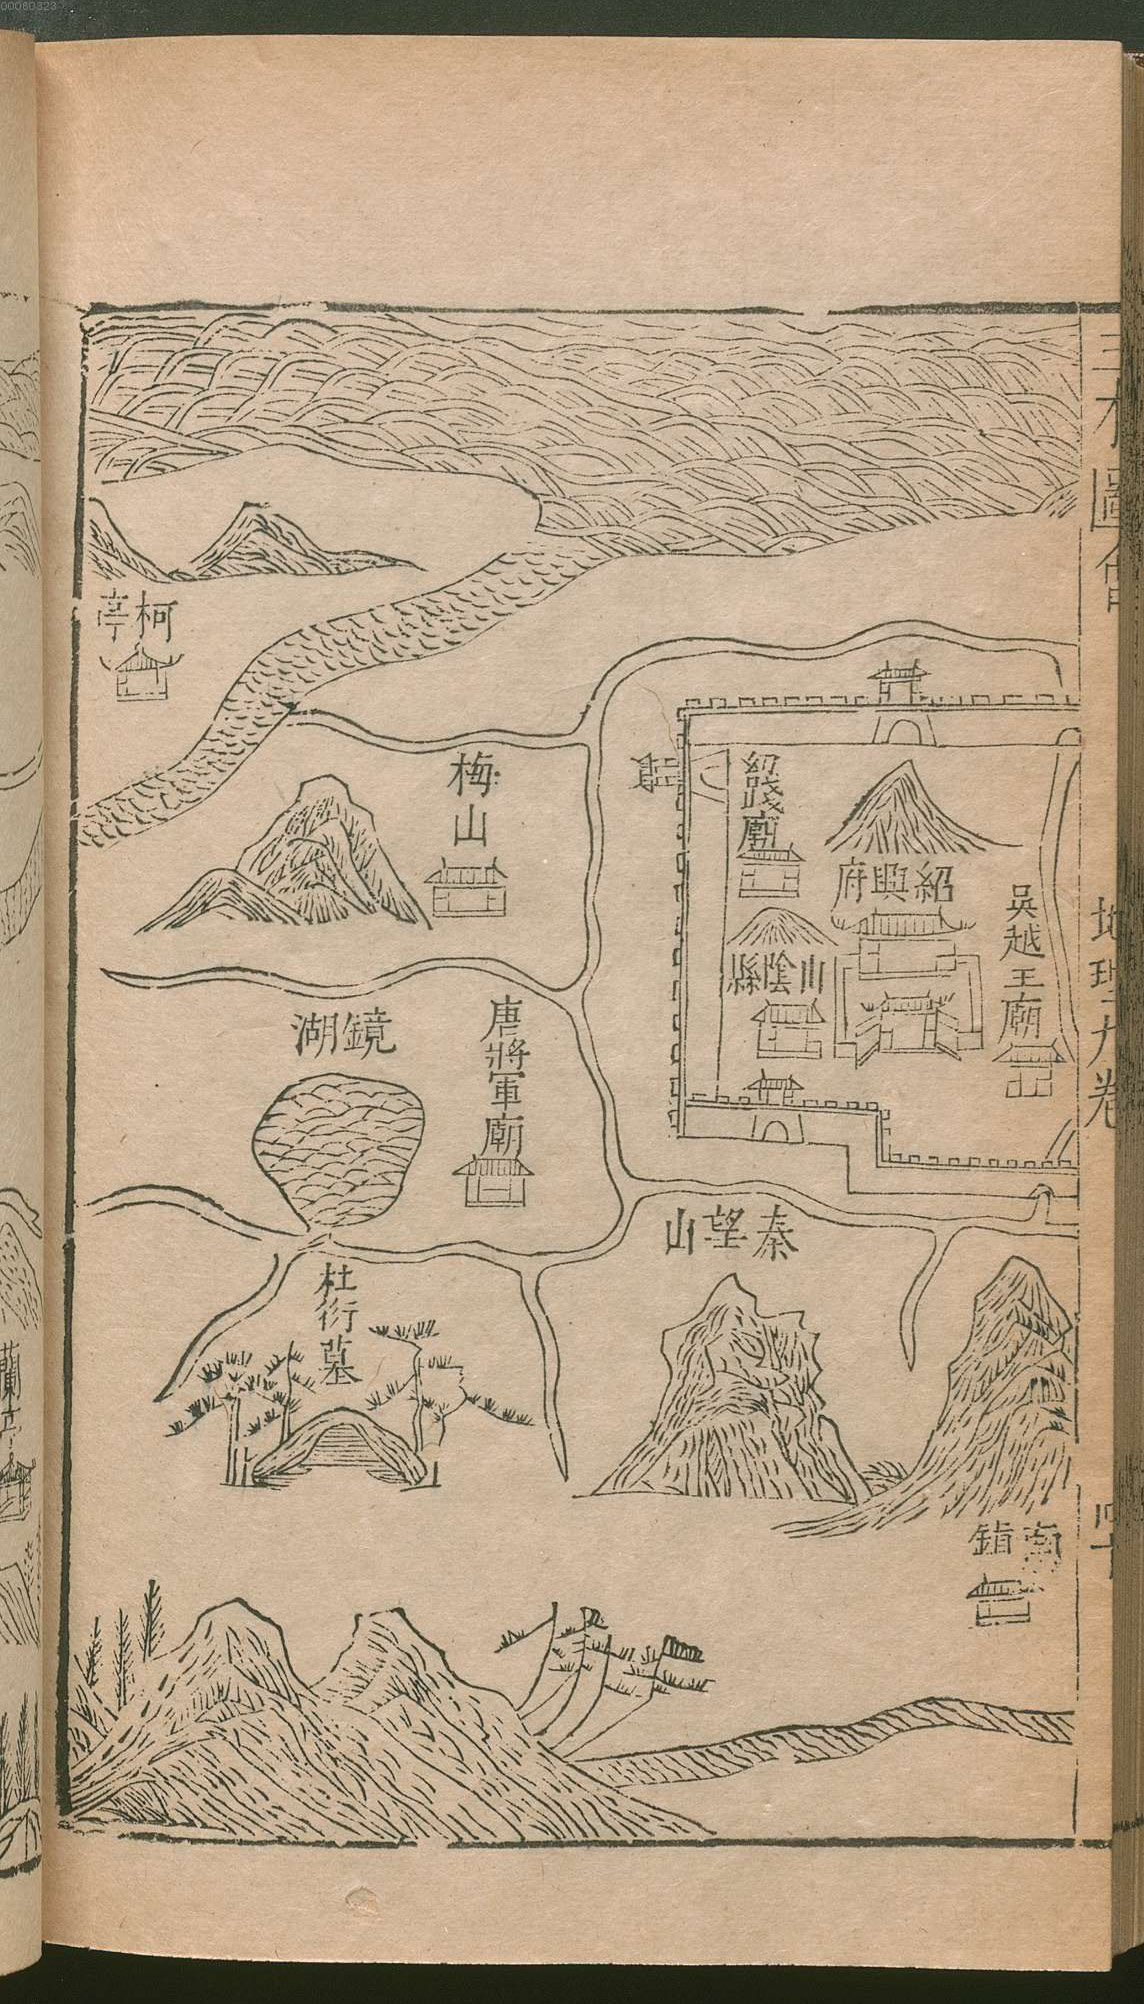 00080323
三才圖會
地理九卷
柯亭
梅山
紹踐廟
紹興府
吳越王廟
山陰縣
鏡湖
唐將軍廟
秦望山
杜衍墓
南鎮
蘭亭